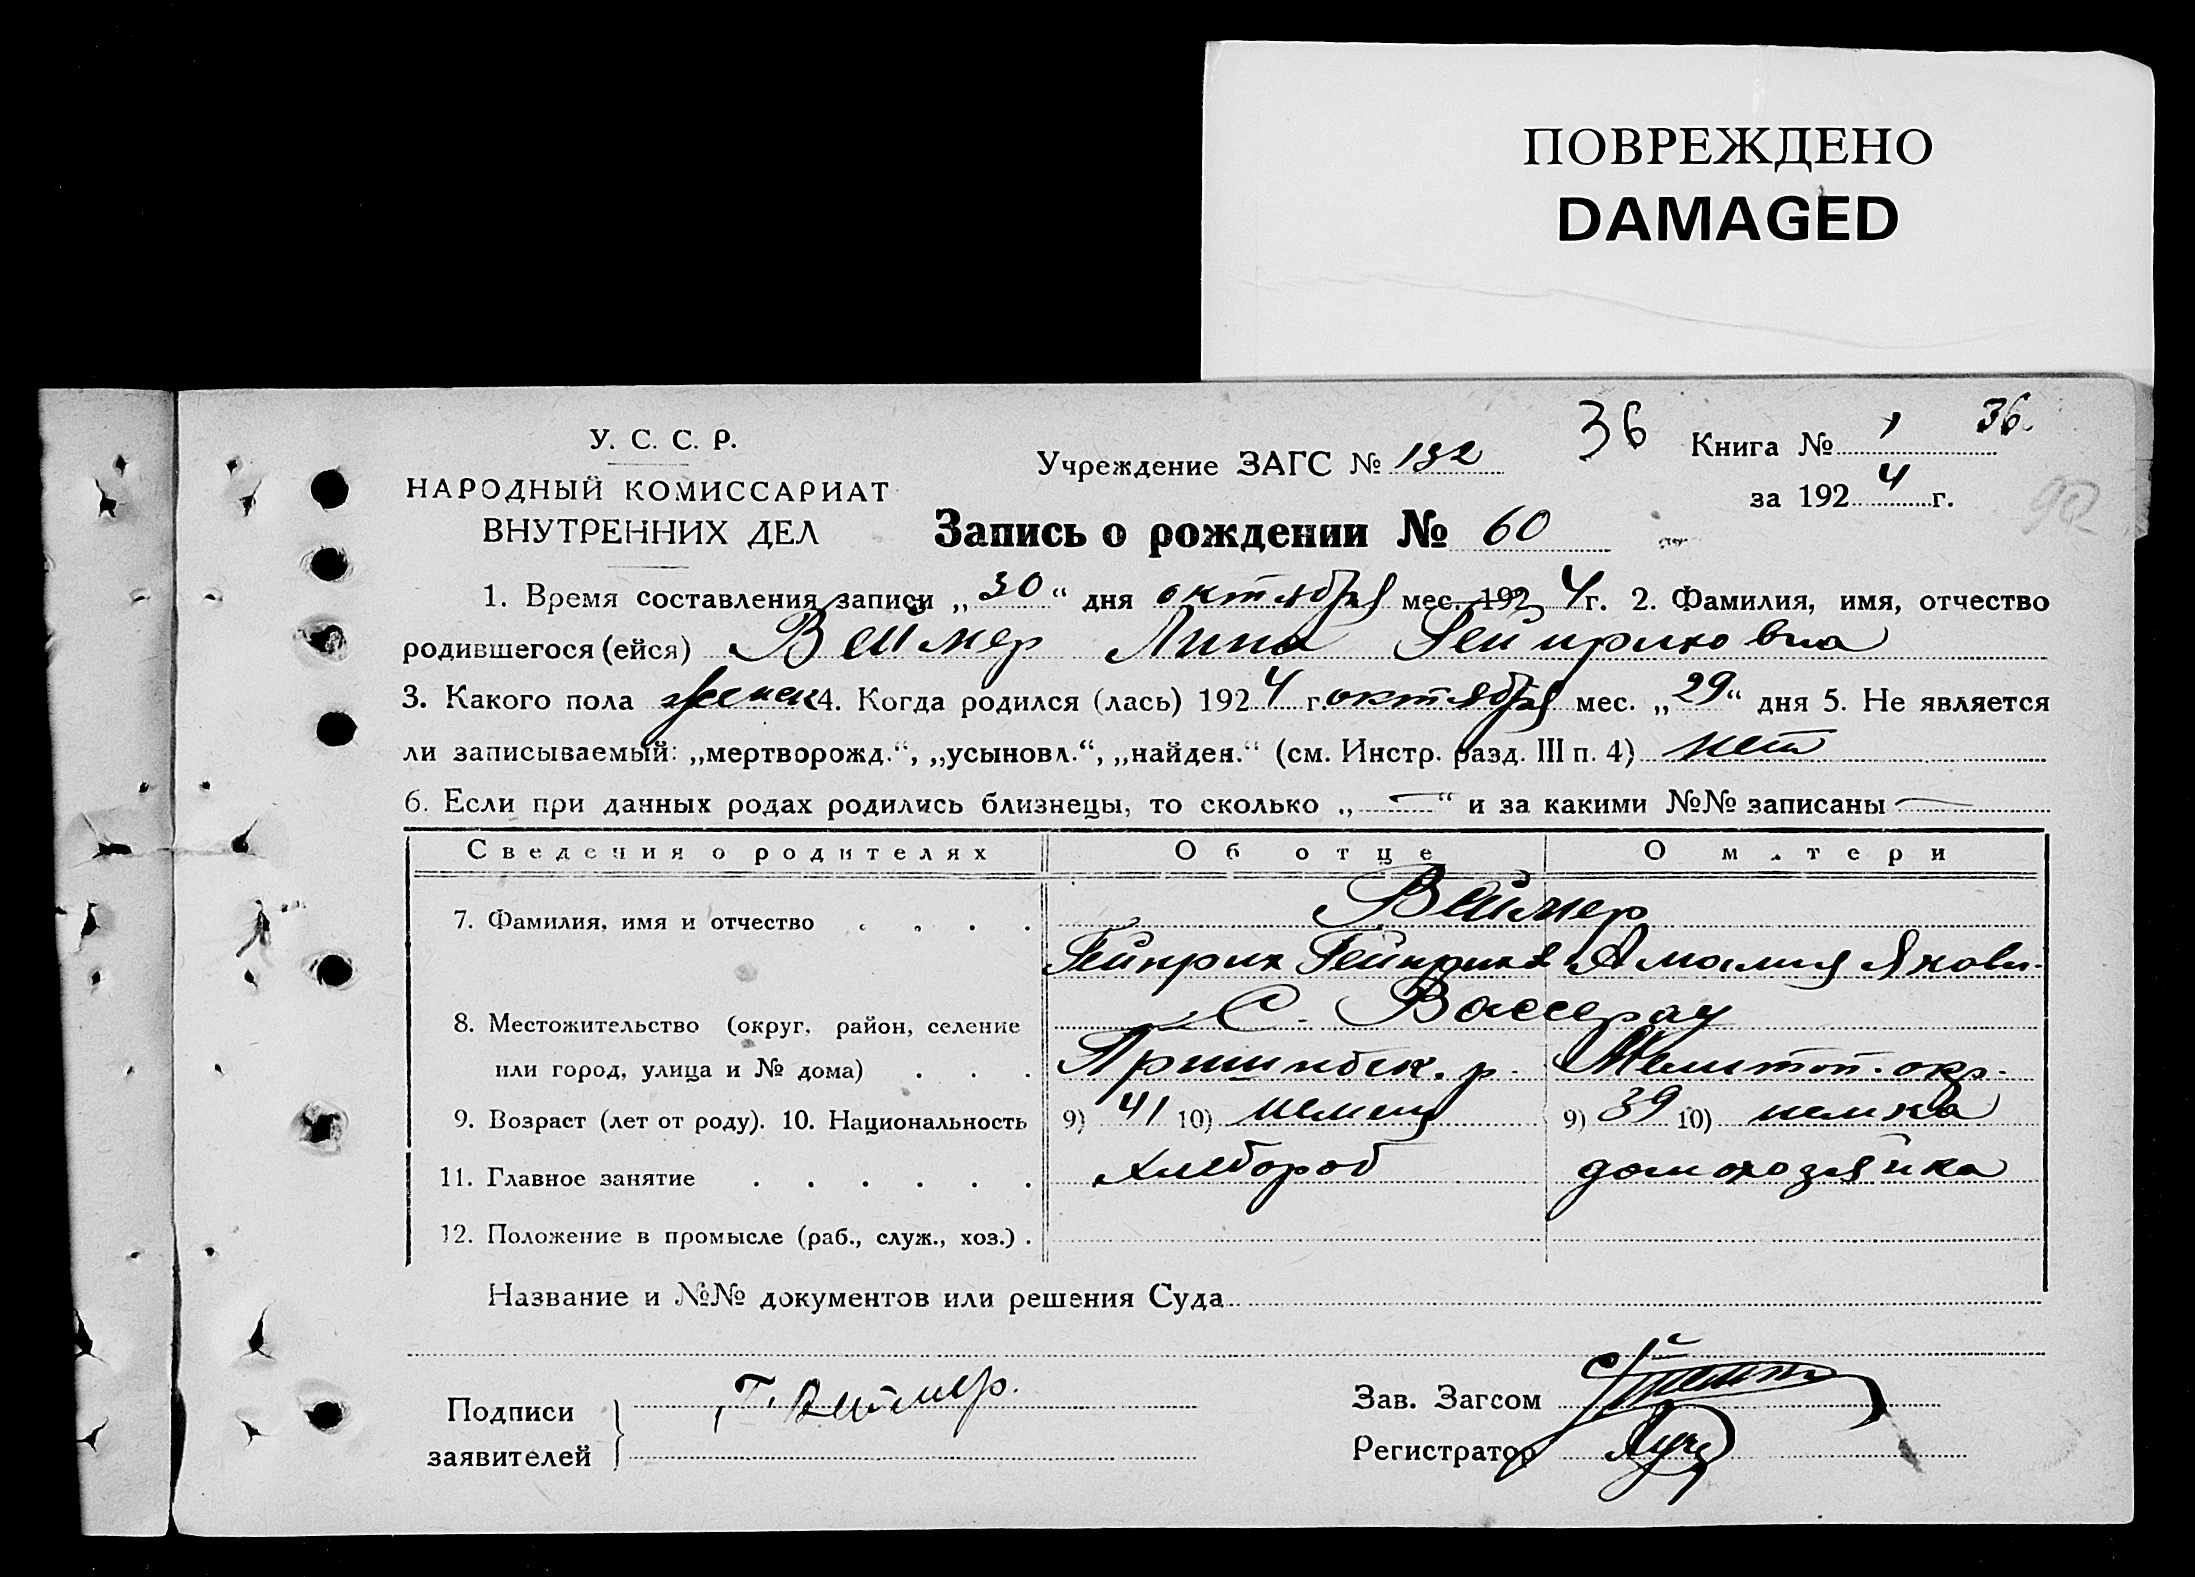 ПОВРЕЖДЕНО
DAMAGED
У. С. С. Р.
НАРОДНЫЙ КОМИССАРИАТ
ВНУТРЕННИХ ДЕЛ
Учреждение ЗАГС № 132
36
Книга № 1
36.
за 1924 г.
Запись о рождении № 60
1. Время составления записи „30“ дня октября мес. 1924 г. 2. Фамилия, имя, отчество
родившегося (ейся) Веймер Лина Гейнриховна
3. Какого пола женск 4. Когда родился (лась) 1924 г. октября мес. „29“ дня 5. Не является
ли записываемый: „мертворожд.“, „усыновл.“, „найден.“ (см. Инстр. разд. III п. 4) нет
6. Если при данных родах родились близнецы, то сколько „—“ и за какими №№ записаны —
Сведения о родителях Об отце О матери
7. Фамилия, имя и отчество Веймер
Гейнрих Гейнрихов Амалия Яковл.
8. Местожительство (округ, район, селение С. Вассерау
или город, улица и № дома) Пришибск. р. Мелитоп. окр.
9. Возраст (лет от роду). 10. Национальность 9) 41 10) немец 9) 39 10) немка
11. Главное занятие хлебороб домохозяйка
12. Положение в промысле (раб., служ., хоз.)
Название и №№ документов или решения Суда
Подписи
заявителей
Г. Веймер.
Зав. Загсом
Регистратор